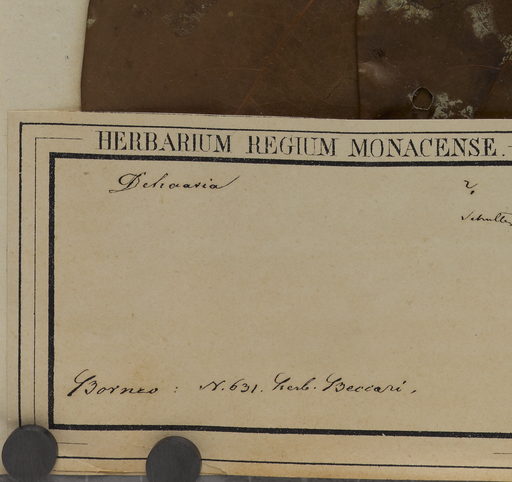 HERBARIUM REGIUM MONACENSE.
Dehaasia ?
Borneo : N. 631. Herb. Beccari.